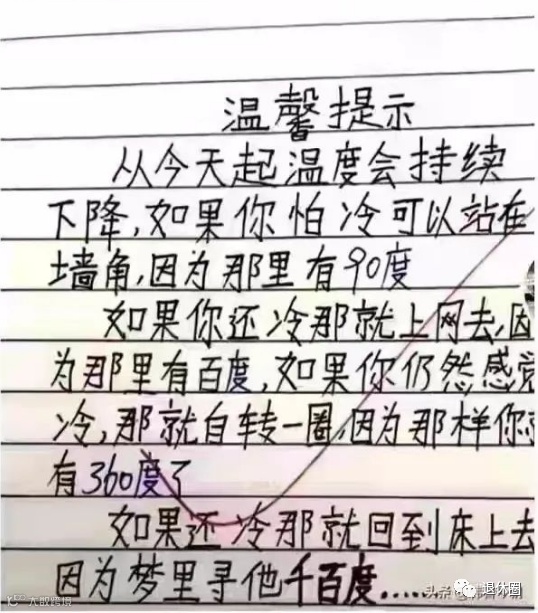 温馨提示
从今天起温度会持续
下降,如果你怕冷可以站在
墙角,因为那里有90度
如果你还冷那就上网去,因
为那里有百度,如果你仍然感觉
冷,那就自转一圈,因为那样你就
有360度了
如果还冷那就回到床上去
因为梦里寻他千百度......
退休圈
大叔跨境